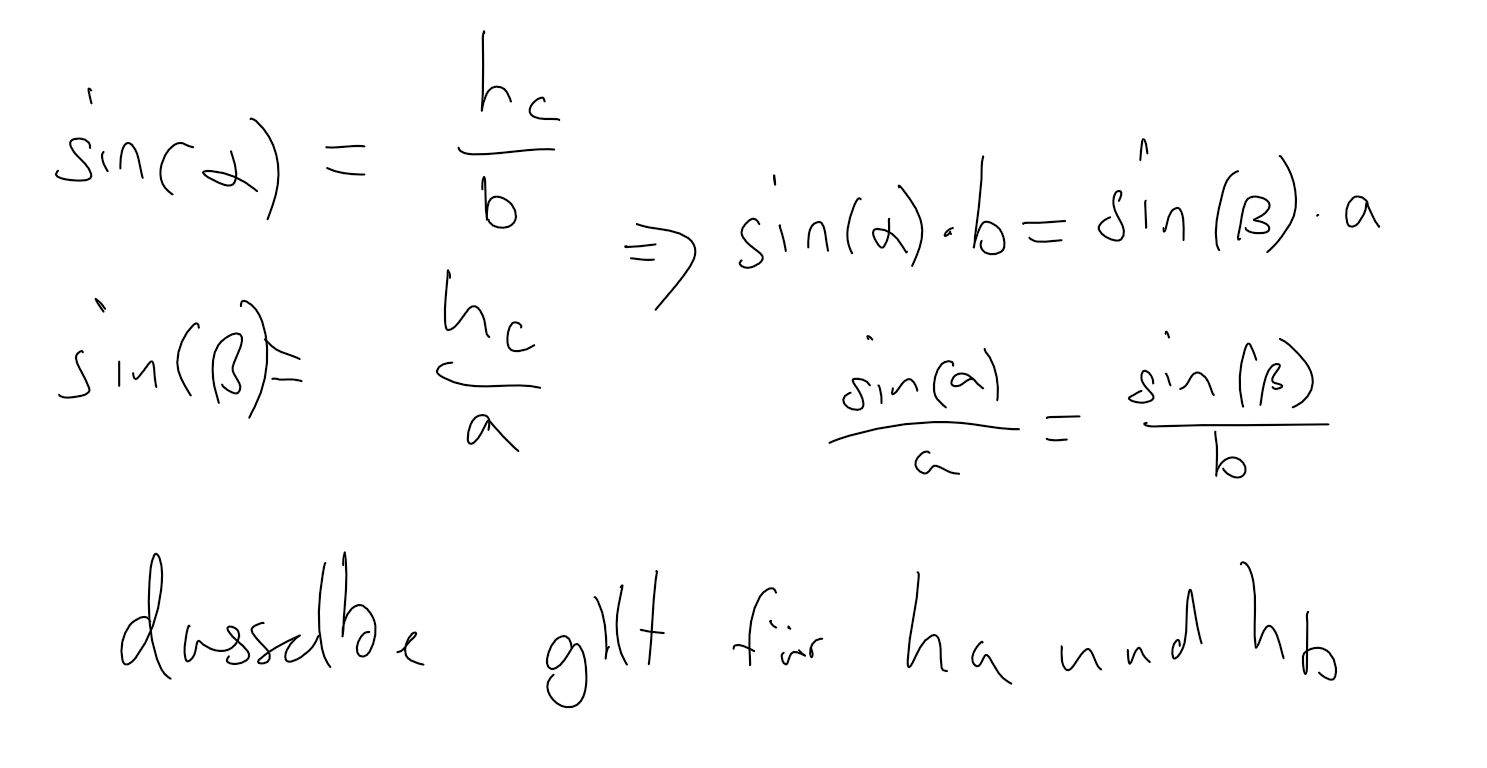 sin(α) = h_c / b
⇒ sin(α) · b = sin(β) · a
sin(β) = h_c / a
sin(α) / a = sin(β) / b
dasselbe gilt für ha und hb